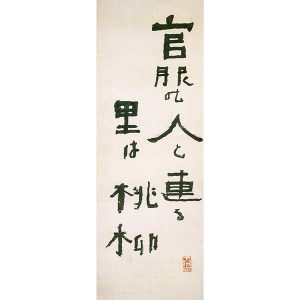 官服の人と連る
里は桃柳